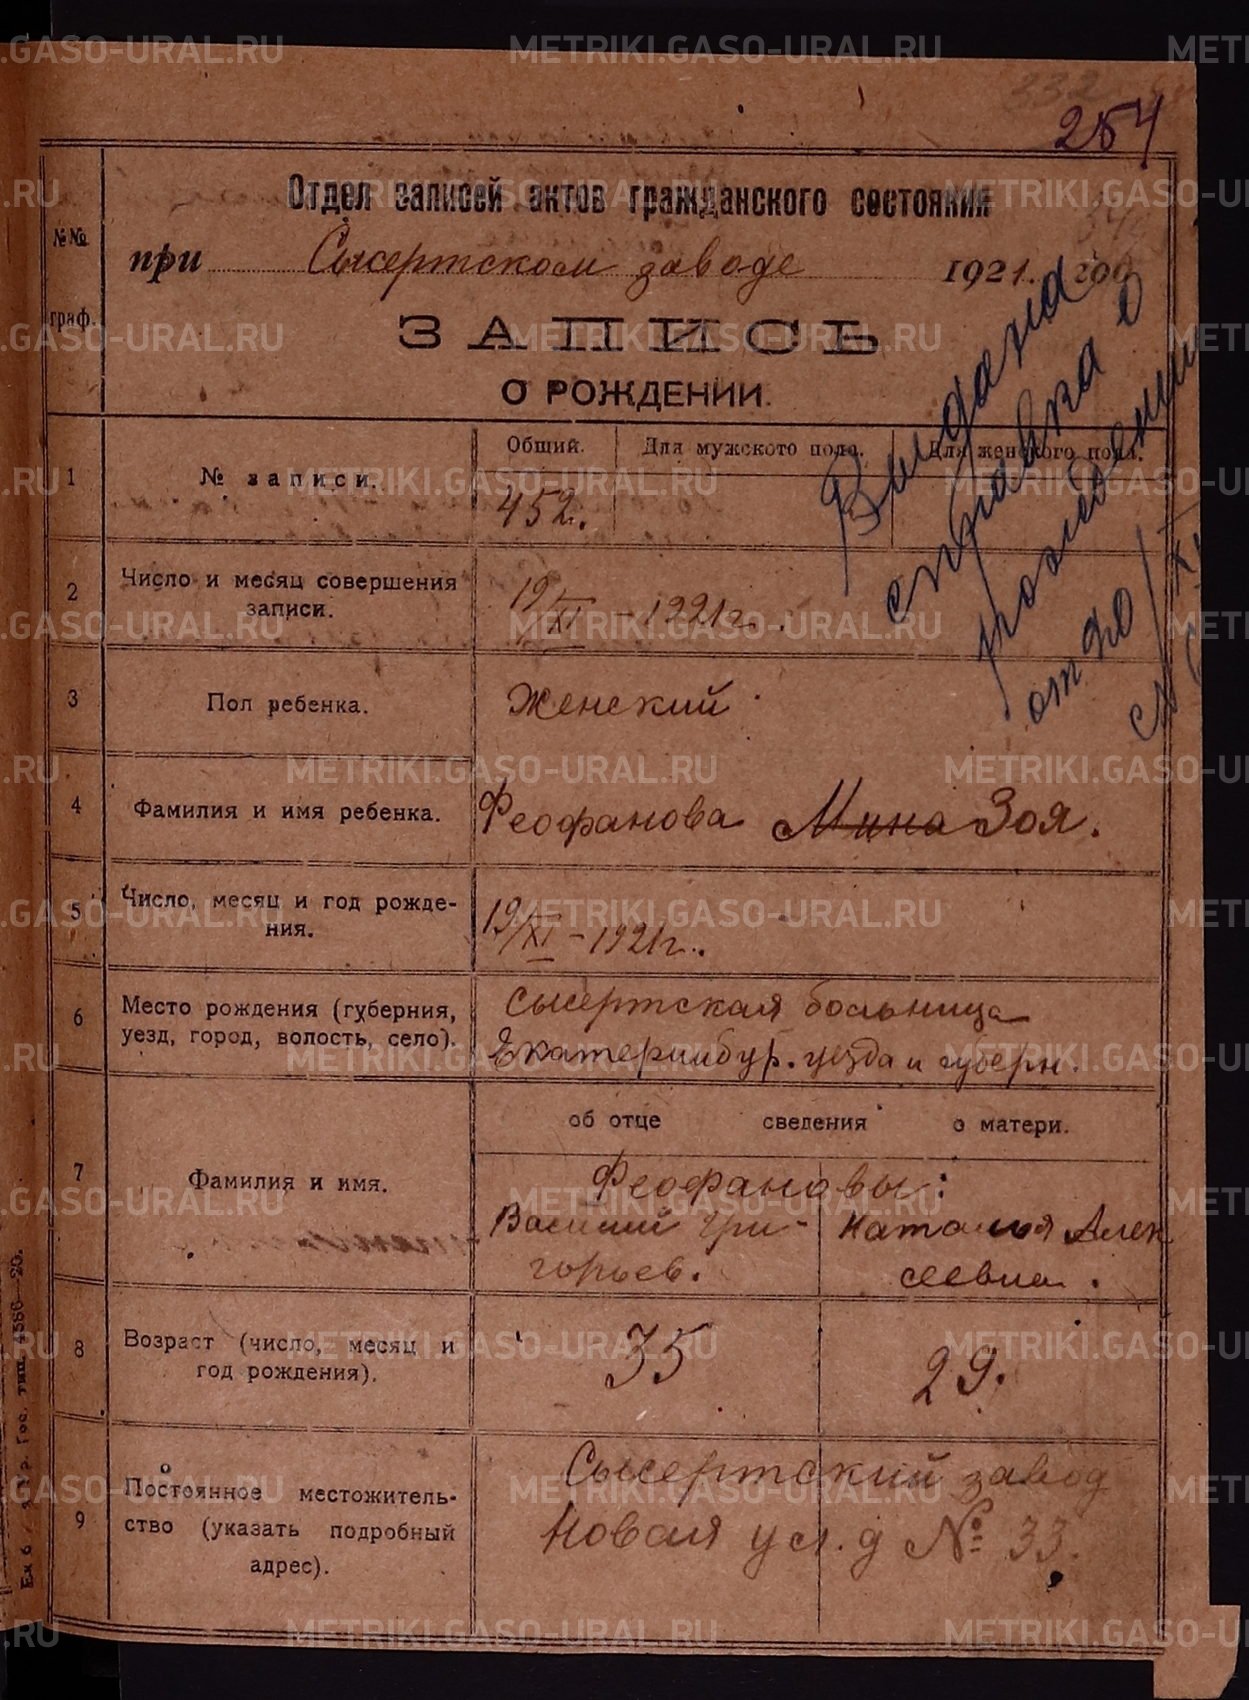 254
Отдел записей актов гражданского состояния
№№ граф.
при Сысертском заводе 1921. год
ЗАПИСЬ
О РОЖДЕНИИ.
Выдана
справка о
рождении
1
№ записи.
Общий. Для мужского пола. Для женского пола.
452.
2
Число и месяц совершения
записи.
19/XI – 1921 г.
3
Пол ребенка.
Женский
4
Фамилия и имя ребенка.
Феофанова Зоя.
5
Число, месяц и год рожде-
ния.
19/XI – 1921 г.
6
Место рождения (губерния,
уезд, город, волость, село).
Сысертская больница
Екатеринбур. уезда и губерн.
об отце сведения о матери.
7
Фамилия и имя.
Феофановы:
Василий Гри-
горьев.
Наталья Алек
сеевна.
8
Возраст (число, месяц и
год рождения).
35
29.
9
Постоянное местожитель-
ство (указать подробный
адрес).
Сысертский завод
Новая ул. д № 33.
METRIKI.GASO-URAL.RU